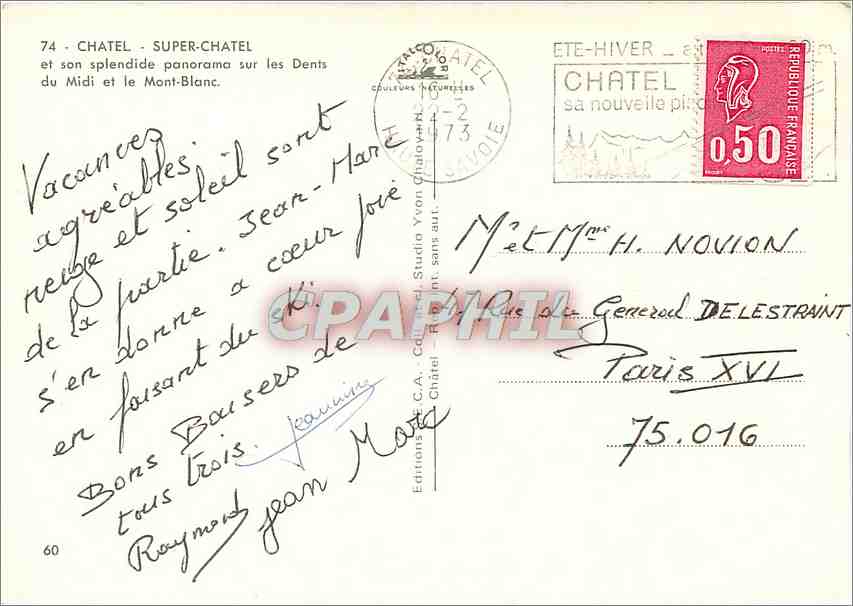 74 - CHATEL - SUPER-CHATEL
et son splendide panorama sur les Dents
du Midi et le Mont-Blanc.
Vacances
agréables.
neige et soleil sont
de la partie. Jean-Marc
s'en donne a cœur joie
en faisant du ski.
Bons Baisers de
tous trois.
Jeannine
Raymond
Jean Marc
60
CHATEL
22-2
1973
HAUTE SAVOIE
COULEURS NATURELLES
ETE-HIVER
CHATEL
sa nouvelle
POSTES
REPUBLIQUE FRANÇAISE
0,50
Editions
Studio Yvon Chaloyard
Châtel
sans aut.
CPAPHIL
Mr et Mme H. NOVION
Rue du General DELESTRAINT
Paris XVI
75.016